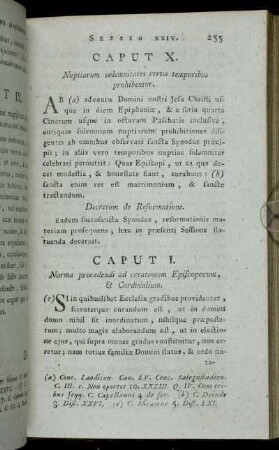 SESSIO XXIV. 255
CAPUT X.
Nuptiarum solemnitates certis temporibus
prohibentur.
AB (a) adventu Domini nostri Jesu Christi us-
que in diem Epiphaniæ, & a feria quarta
Cinerum usque in octavam Paschatis inclusive,
antiquas solemnium nuptiarum prohibitiones dili-
genter ab omnibus observari sancta Synodus præci-
pit; in aliis vero temporibus nuptias solemniter
celebrari permittit: Quas Episcopi, ut ea qua de-
cet modestia, & honestate fiant, curabunt: (b)
sancta enim res est matrimonium, & sancte
tractandum.
Decretum de Reformatione.
Eadem sacrosancta Synodus, reformationis ma-
teriam prosequens, hæc in præsenti Sessione sta-
tuenda decernit.
CAPUT I.
Norma procedendi ad creationem Episcoporum,
& Cardinalium.
(c) SI in quibuslibet Ecclesiæ gradibus providenter,
scienterque curandum est, ut in Domini
domo nihil sit inordinatum, nihilque præposte-
rum; multo magis elaborandum est, ut in electio-
ne ejus, qui supra omnes gradus constituitur, non er-
retur; nam totius familiæ Domini status, & ordo nu-
ta-
(a) Conc. Laodicen. Can. LV. Conc. Salegustadien.
C. III. c. Non oportet 10. XXXIII. Q. IV. cum tri-
bus seqq. C. Capellanus 4 de fer. (b) C. Deinde
5. Dist. XXVI. (c) C. Miramur 5. Dist. LXI.